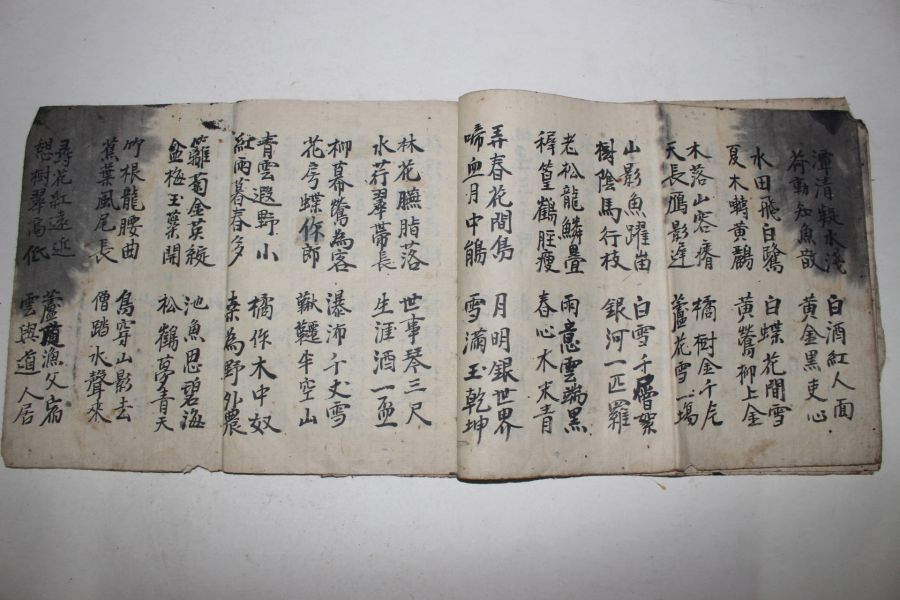 潭清疑水淺
荷動知魚散
水田飛白鷺
夏木轉黃鸝
木落山容瘠
天長鴈影遲
山影魚躍岀
樹陰馬行枝
老松龍鱗疊
稺篁鶴脛瘦
弄春花間鳥
啼血月中鵑
白酒紅人面
黃金黑吏心
白蝶花間雪
黃鶯柳上金
橘樹金千片
蘆花雪一場
白雪千層架
銀河一匹羅
雨意雲端黑
春心水末青
月明銀世界
雪滿玉乾坤
林花臙脂落
水荇翠帶長
柳幕鶯為客
花房蝶作郎
青雲遐野小
紅雨暮春多
籬菊金英綻
盆梅玉葉開
竹根龍腰曲
蕉葉風尾長
尋花紅遠近
想樹翠高低
世事琴三尺
生涯酒一盃
瀑沛千丈雪
韆半空山
橘作木中奴
棗為野外農
池魚思碧海
松鶴夢青天
鳥穿山影去
僧踏水聲來
蘆漁父宿
雲與道人居